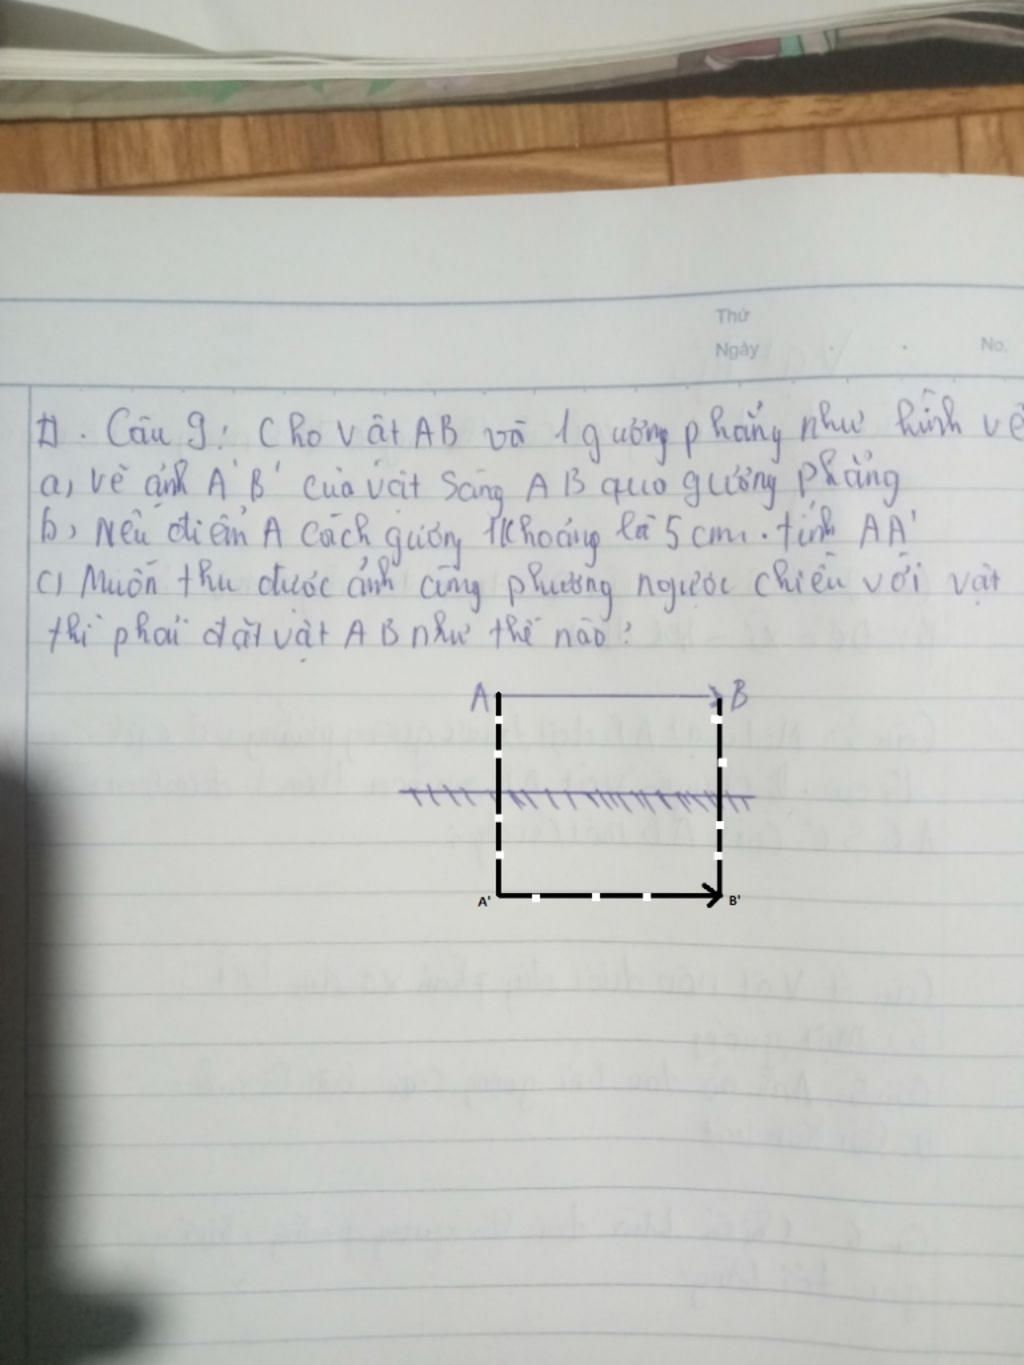 Thứ
Ngày
No.
II. Câu 9: Cho vật AB và 1 gương phẳng như hình vẽ
a, vẽ ảnh A'B' của vật sáng AB qua gương phẳng
b, Nếu điểm A cách gương 1 khoảng là 5 cm. tính AA'
c, Muốn thu được ảnh cùng phương ngược chiều với vật
thì phải đặt vật AB như thế nào?
A B
A' B'